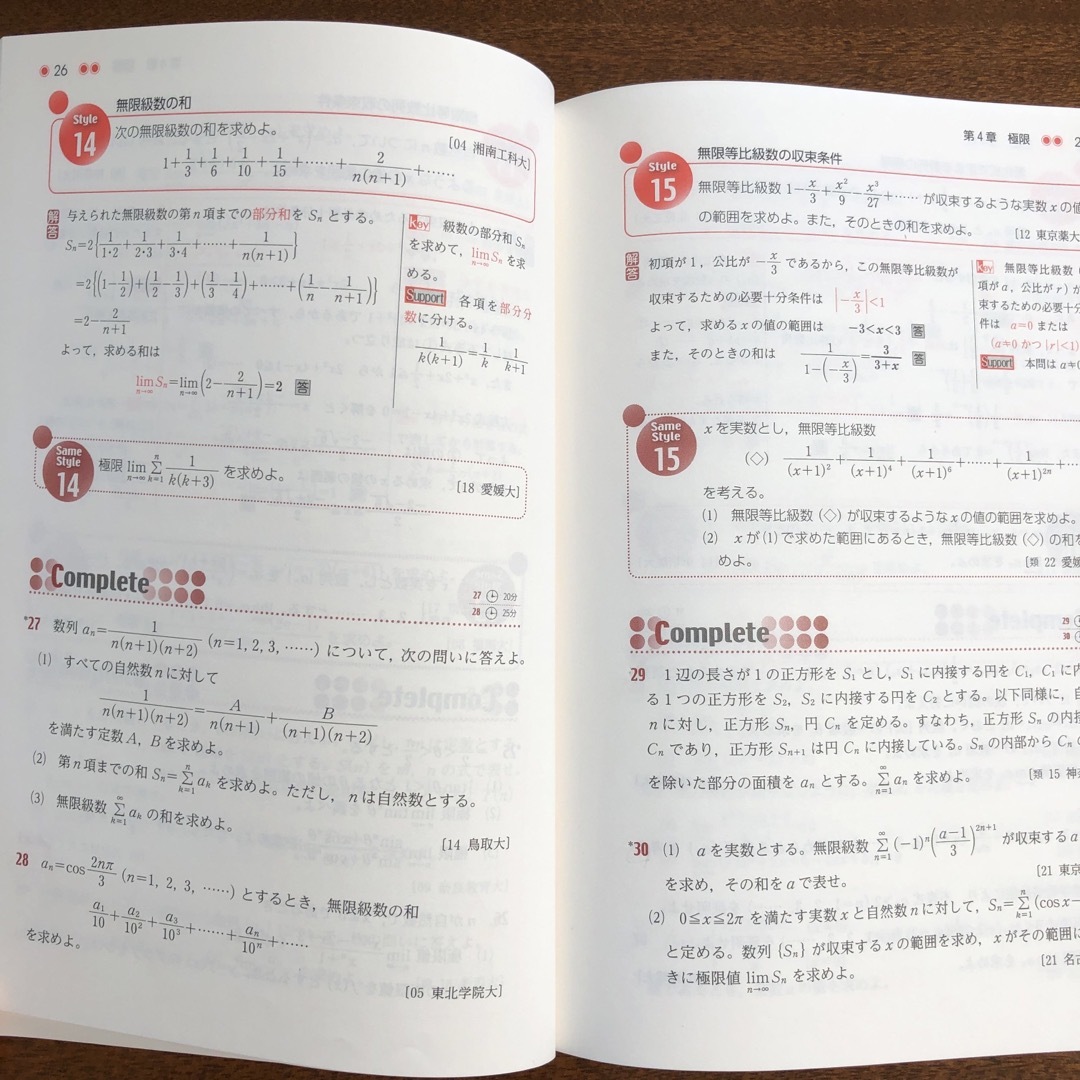 26
無限級数の和
Style 14
次の無限級数の和を求めよ。
[04 湘南工科大]
1+1/3+1/6+1/10+1/15+……+2/n(n+1)+……
解答
与えられた無限級数の第n項までの部分和をSnとする。
Sn=2{1/1・2+1/2・3+1/3・4+……+1/n(n+1)}
=2{(1-1/2)+(1/2-1/3)+(1/3-1/4)+……+(1/n-1/n+1)}
=2-2/n+1
よって，求める和は
lim n→∞ Sn=lim n→∞ (2-2/n+1)=2 答
Key 級数の部分和Sn
を求めて，lim n→∞ Snを求
める。
Support 各項を部分分
数に分ける。
1/k(k+1)=1/k-1/k+1
Same Style 14
極限 lim n→∞ Σ k=1 n 1/k(k+3) を求めよ。
[18 愛媛大]
Complete
27 20分
28 25分
*27 数列 an=1/n(n+1)(n+2) (n=1, 2, 3, ……) について，次の問いに答えよ。
(1) すべての自然数nに対して
1/n(n+1)(n+2)=A/n(n+1)+B/(n+1)(n+2)
を満たす定数A，Bを求めよ。
(2) 第n項までの和 Sn=Σ k=1 n ak を求めよ。ただし，nは自然数とする。
(3) 無限級数 Σ k=1 ∞ ak の和を求めよ。
[14 鳥取大]
28 an=cos 2nπ/3 (n=1, 2, 3, ……) とするとき，無限級数の和
a1/10+a2/10²+a3/10³+……+an/10ⁿ+……
を求めよ。
[05 東北学院大]
第4章 極限
無限等比級数の収束条件
Style 15
無限等比級数 1-x/3+x²/9-x³/27+…… が収束するような実数xの値
の範囲を求めよ。また，そのときの和を求めよ。
[12 東京薬大
解答
初項が1，公比が -x/3 であるから，この無限等比級数が
収束するための必要十分条件は |-x/3|<1
よって，求めるxの値の範囲は -3<x<3 答
また，そのときの和は 1/1-(-x/3)=3/3+x 答
Key 無限等比級数
項がa，公比がr)
束するための必要十分
件は a=0 または
(a≠0 かつ |r|<1)
Support 本問は a≠0
Same Style 15
xを実数とし，無限等比級数
(◇) 1/(x+1)²+1/(x+1)⁴+1/(x+1)⁶+……+1/(x+1)²ⁿ+……
を考える。
(1) 無限等比級数(◇)が収束するようなxの値の範囲を求めよ。
(2) xが(1)で求めた範囲にあるとき，無限等比級数(◇)の和を
めよ。
[類 22 愛媛
Complete
29
30
29 1辺の長さが1の正方形をS1とし，S1に内接する円をC1，C1に内
る1つの正方形をS2，S2に内接する円をC2とする。以下同様に，自
nに対し，正方形Sn，円Cnを定める。すなわち，正方形Snの内接
Cnであり，正方形Sn+1は円Cnに内接している。Snの内部からCnの
を除いた部分の面積をanとする。Σ n=1 ∞ an を求めよ。
[類 15 神奈
*30 (1) aを実数とする。無限級数 Σ n=1 ∞ (-1)ⁿ(a-1/3)²ⁿ⁺¹ が収束するa
を求め，その和をaで表せ。
[21 東京
(2) 0≦x≦2π を満たす実数xと自然数nに対して，Sn=Σ k=1 n (cos x-
と定める。数列{Sn}が収束するxの範囲を求め，xがその範囲に
きに極限値 lim n→∞ Sn を求めよ。
[21 名古